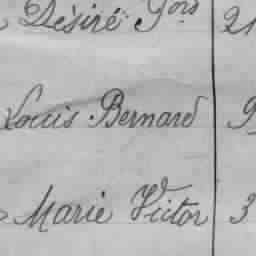 Désiré Gors 21
Louis Bernard 9
Marie Victor 3